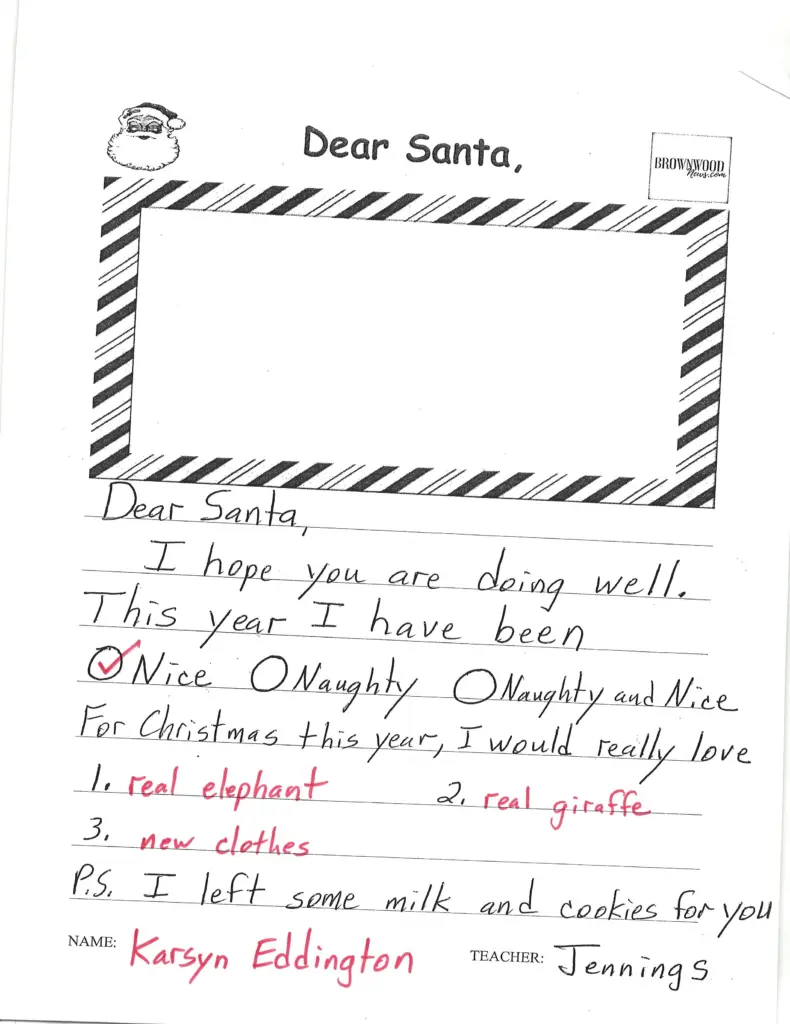 Dear Santa,
BROWNWOOD
News.com
Dear Santa,
I hope you are doing well.
This year I have been
Nice Naughty Naughty and Nice
For Christmas this year, I would really love
1. real elephant 2. real giraffe
3. new clothes
P.S. I left some milk and cookies for you
NAME: Karsyn Eddington TEACHER: Jennings